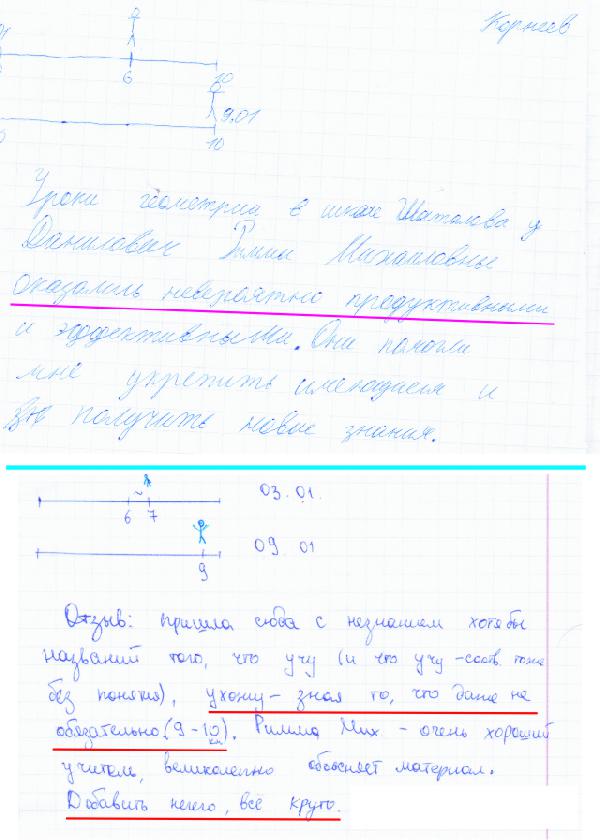 Корнеев
6 10
9.01
10
Уроки геометрии в школе Шаталова у
Данилович Риммы Михайловны
оказались невероятно продуктивными
и эффективными. Они помогли
мне укрепить имеющиеся и
получить новые знания.
03.01.
6 7
09.01
9
Отзыв: пришла сюда с незнанием хотя бы
названий того, что учу (и что учу - соотв. тоже
без понятия), ухожу - зная то, что даже не
обязательно (9-10). Римма Мих. - очень хороший
учитель, великолепно объясняет материал.
Добавить нечего, всё круто.